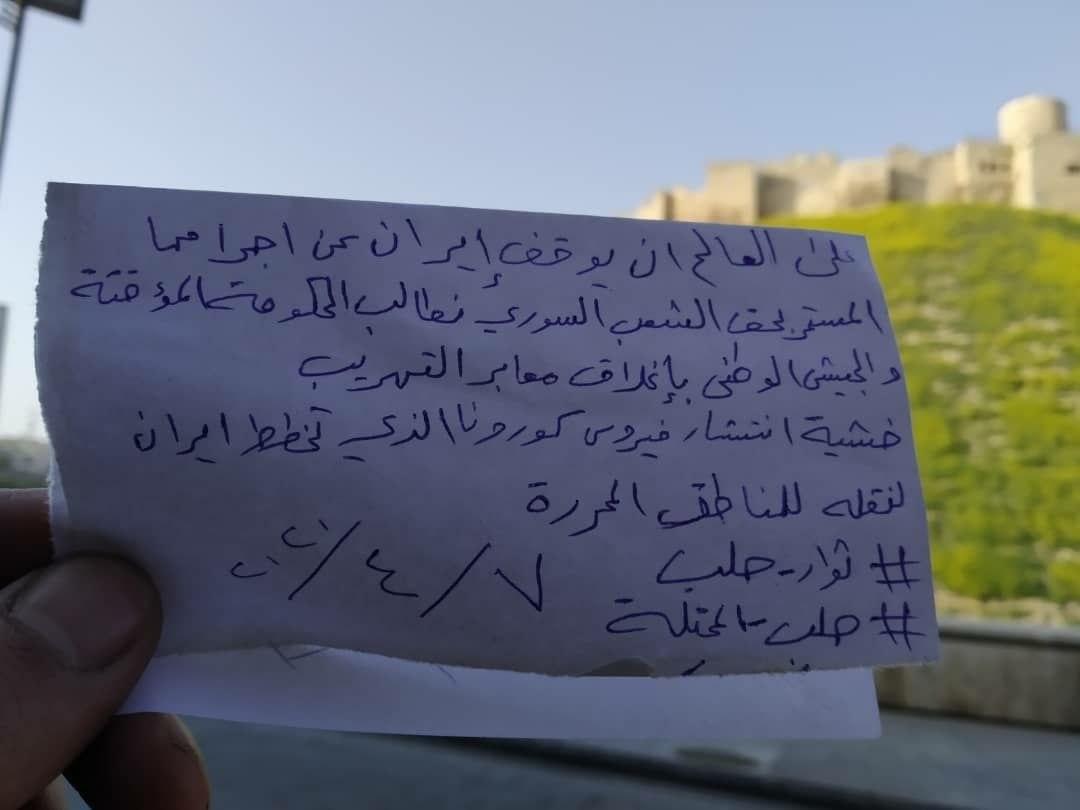 على العالم ان يوقف إيران عن اجرامها
المستمر بحق الشعب السوري نطالب الحكومة المؤقتة
والجيش الوطني بإغلاق معابر التهريب
خشية انتشار فيروس كورونا الذي تخطط ايران
لنقله للمناطق المحررة
# ثوار-حلب
# حلب-المحتلة
٧/٤/